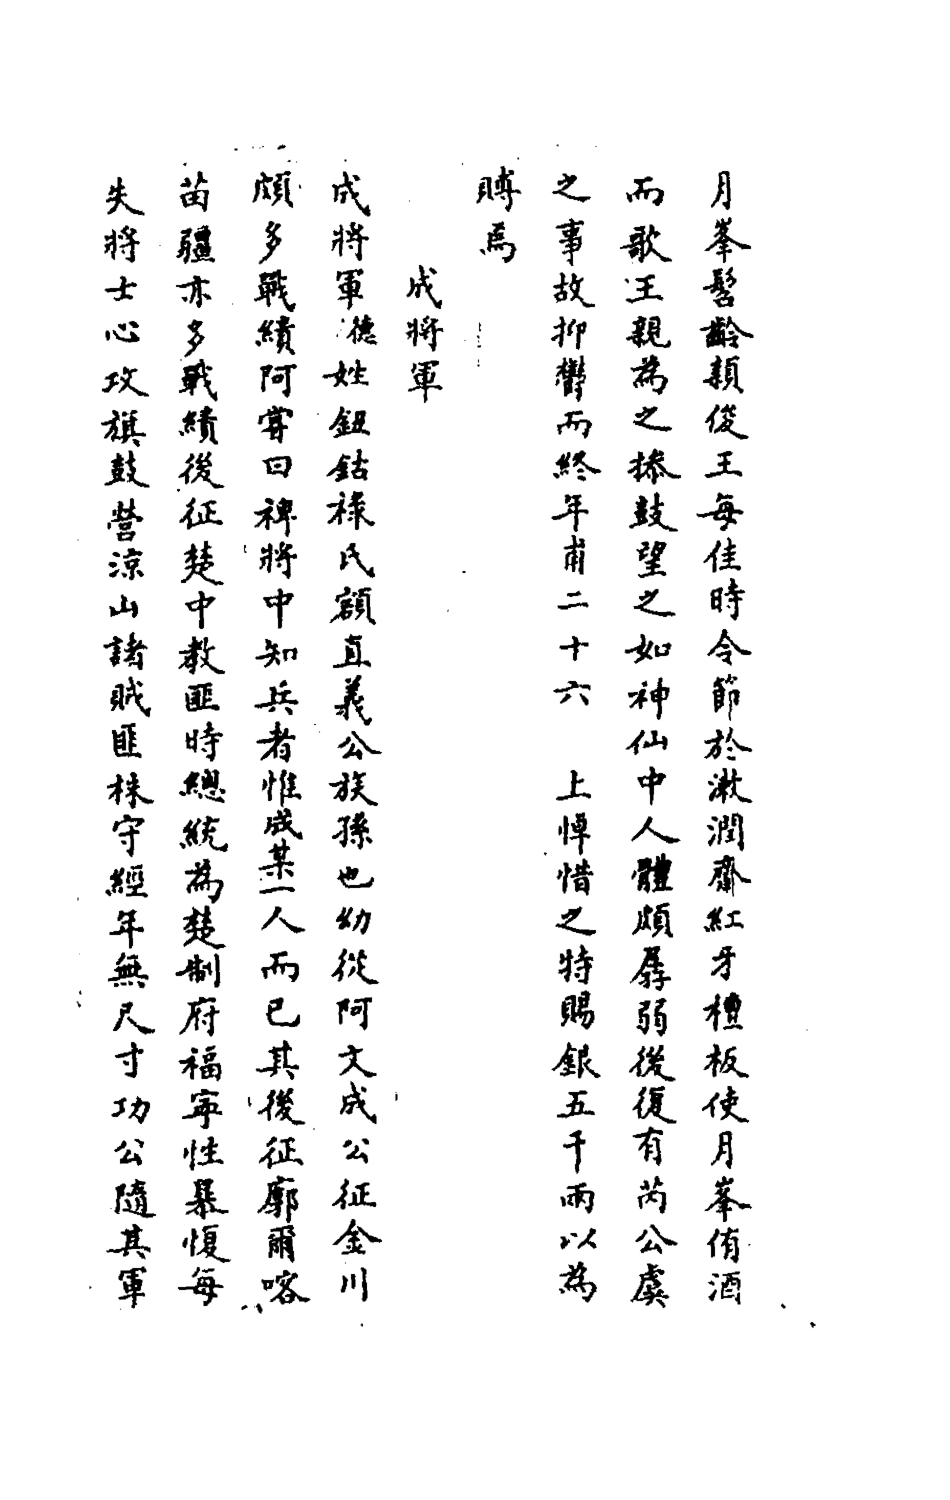 月峯髫齡穎俊王每佳時令節於漱潤齋紅牙檀板使月峯侑酒
而歌王親為之摻鼓望之如神仙中人體頗孱弱後復有芮公虞
之事故抑鬱而終年甫二十六　上悼惜之特賜銀五千兩以為
賻焉
成將軍
成將軍德姓鈕鈷祿氏額直義公族孫也幼從阿文成公征金川
頗多戰績阿嘗曰裨將中知兵者惟成某一人而已其後征廓爾喀
苗疆亦多戰績後征楚中教匪時總統為楚制府福寧性暴愎每
失將士心攻旗鼓營涼山諸賊匪株守經年無尺寸功公隨其軍